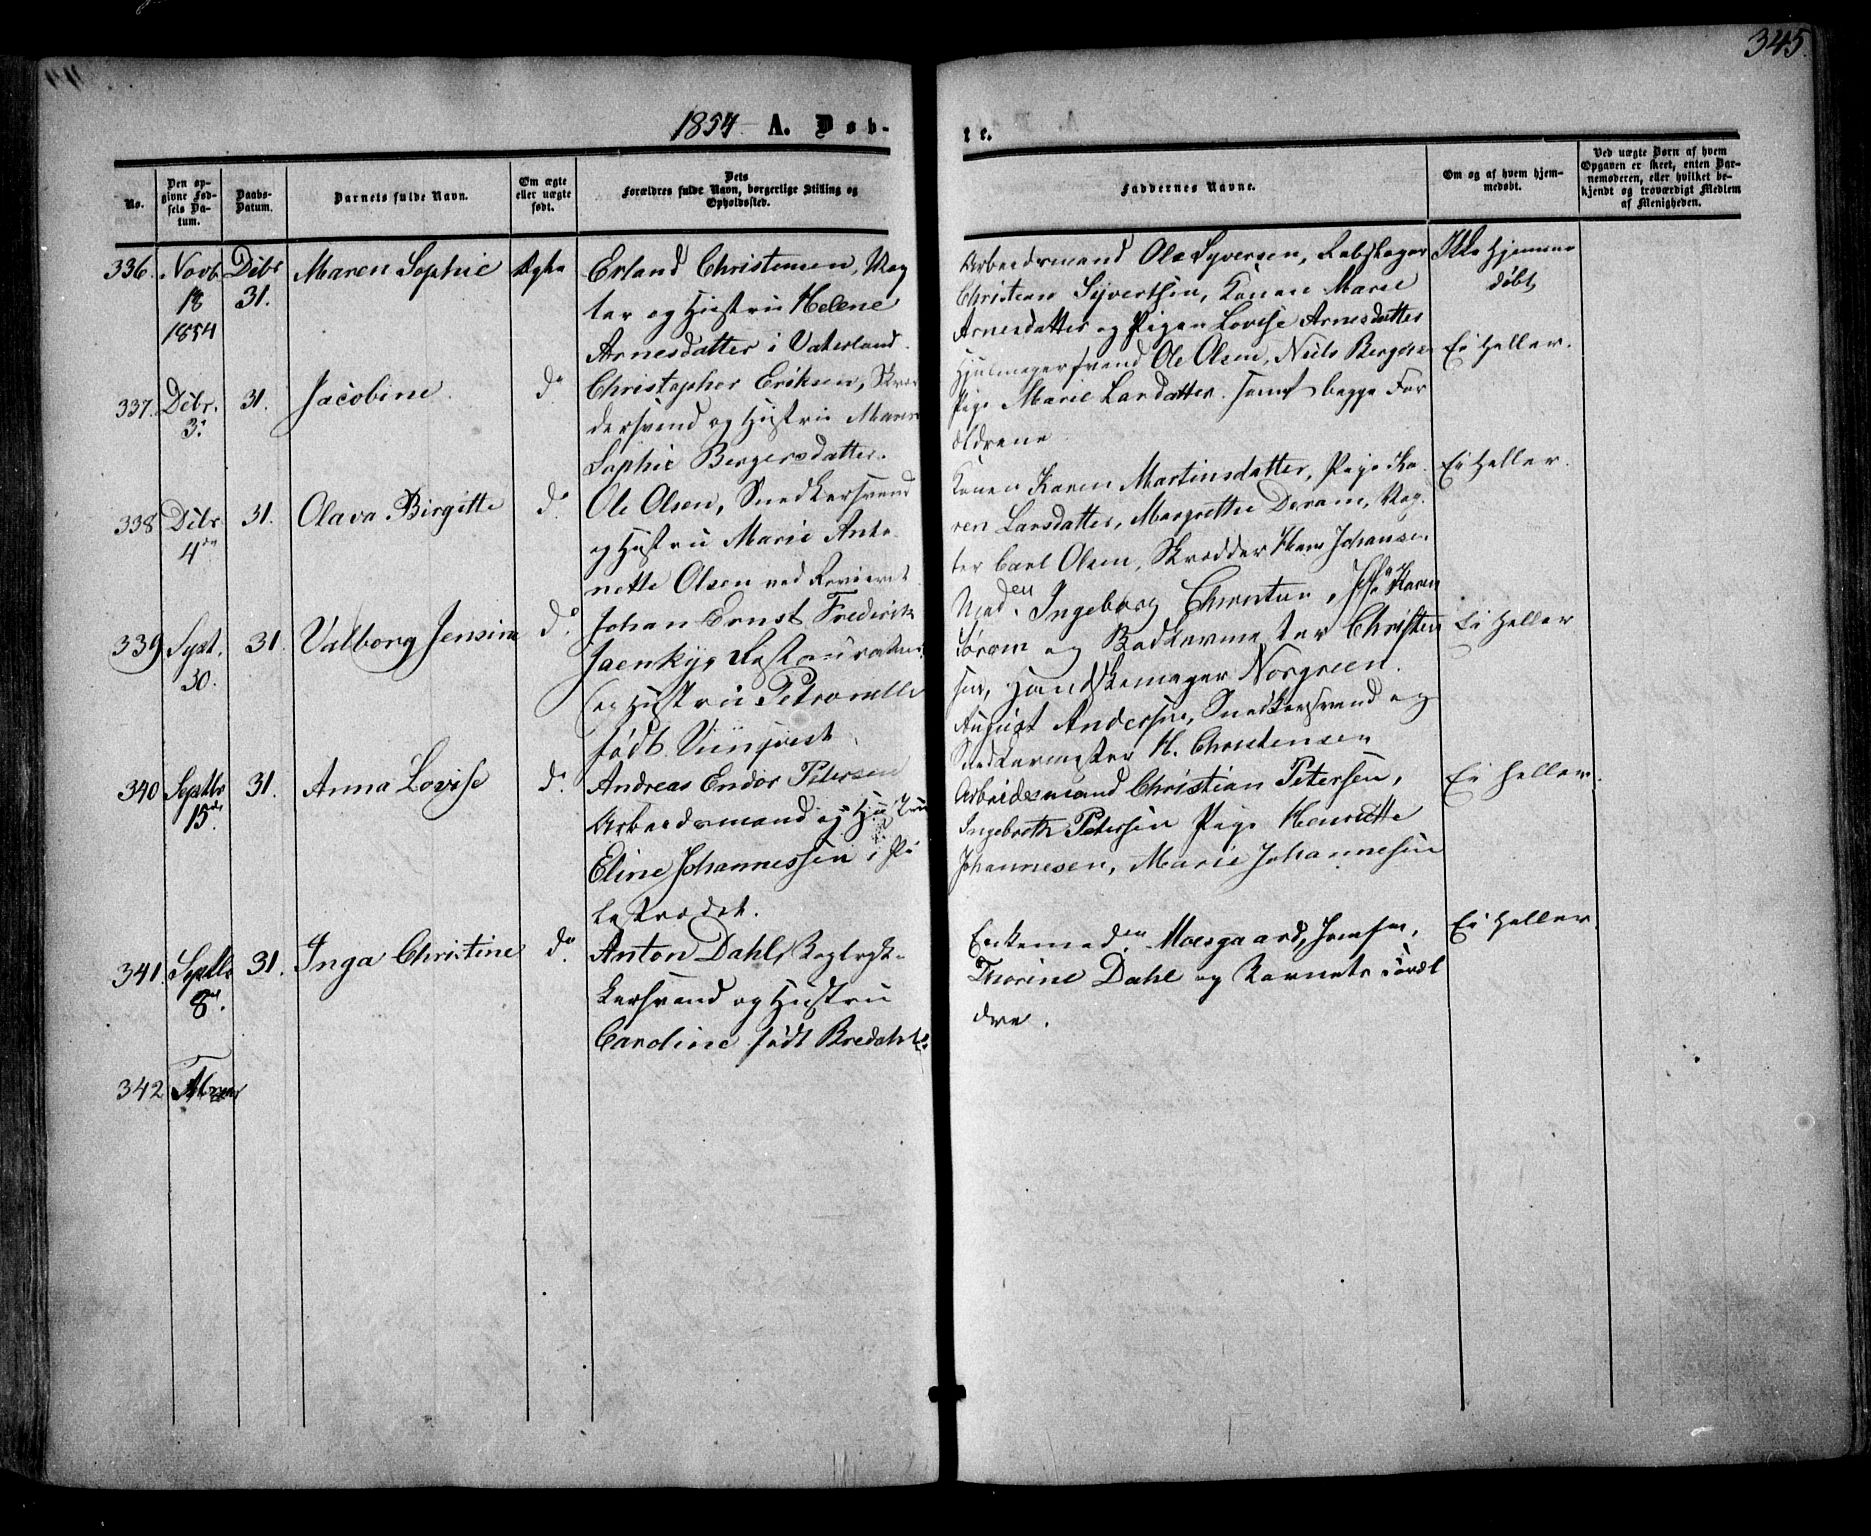 345.
1854 A. Døb-
te.
No.
Den op-
givne Fød-
sels Da-
tum.
Daabs-
Datum.
Barnets fulde Navn.
Om ægte
eller uægte
født.
Dets
Forældres fulde Navn, borgerlige Stilling og
Opholdssted.
Faddernes Navne.
Om og af hvem hjem-
medøbt.
Ved uægte Børn af hvem
Opgaven er skeet, enten Bar-
nemoderen, eller hvilket be-
kjendt og troværdigt Medlem
af Menigheden.
336. Novb. 18 1854
Dcbr 31.
Maren Sophie
Ægte
Erland Christensen, Væg
ter og Hustru Helene
Arnesdatter i Vaterland.
Arbeidsmand Ole Syversen, Rebslager
Christian Syvertsen, Konen Marie
Arnesdatter og Pigen Lovise Arnesdatter
Ikke hjemme
døbt
337. Dcbr. 3.
31.
Jacobine.
do
Christopher Eriksen, Skræd
dersvend og Hustru Maren
Sophie Bergersdatter.
Hjulmagersvend Ole Olsen, Niels Bergersen
Pige Marie Larsdatter. samt begge For
ældrene
Ei heller.
338 Dcbr. 4de
31.
Olava Birgitte
do
Ole Olsen, Snedkersvend
og Hustru Marie Anto
nette Olsen ved Revieret
Konen Karen Martinsdatter, Pige Ka
ren Larsdatter, Margrethe Døram, Væg
ter Carl Olsen, Skrædder Hans Johansen
Ei heller.
339 Sept. 30.
31.
Valborg Jensine
do
Johan Ernst Frederik
Jaenkyg Restaurateur
og Hustru Petronelle
født
Maden Ingeborg Karen
Sørom og Bødkermester Christen
sen, Handskemager Norgreen.
August Andersen, Snedkersvend og
Snedkermester H. Christensen
Ei heller
340 Septbr 15de
31.
Anna Lovise
do
Andreas Ender Petersen
Arbeidsmand og Hustru
Eline Johannessen i Pi
lestrædet.
Arbeidsmand Christian Petersen,
Ingeborth Petersen Pige Henriette
Johannesen, Marie Johannesen
Ei heller.
341. Septbr 8de.
31.
Inga Christine
do
Anton Dahl, Bogtryk-
kersvend og Hustru
Caroline født Bredahl
Enkemaden Moesgaard, Jensen,
Thorine Dahl og Barnets Foræl
dre.
Ei heller.
342